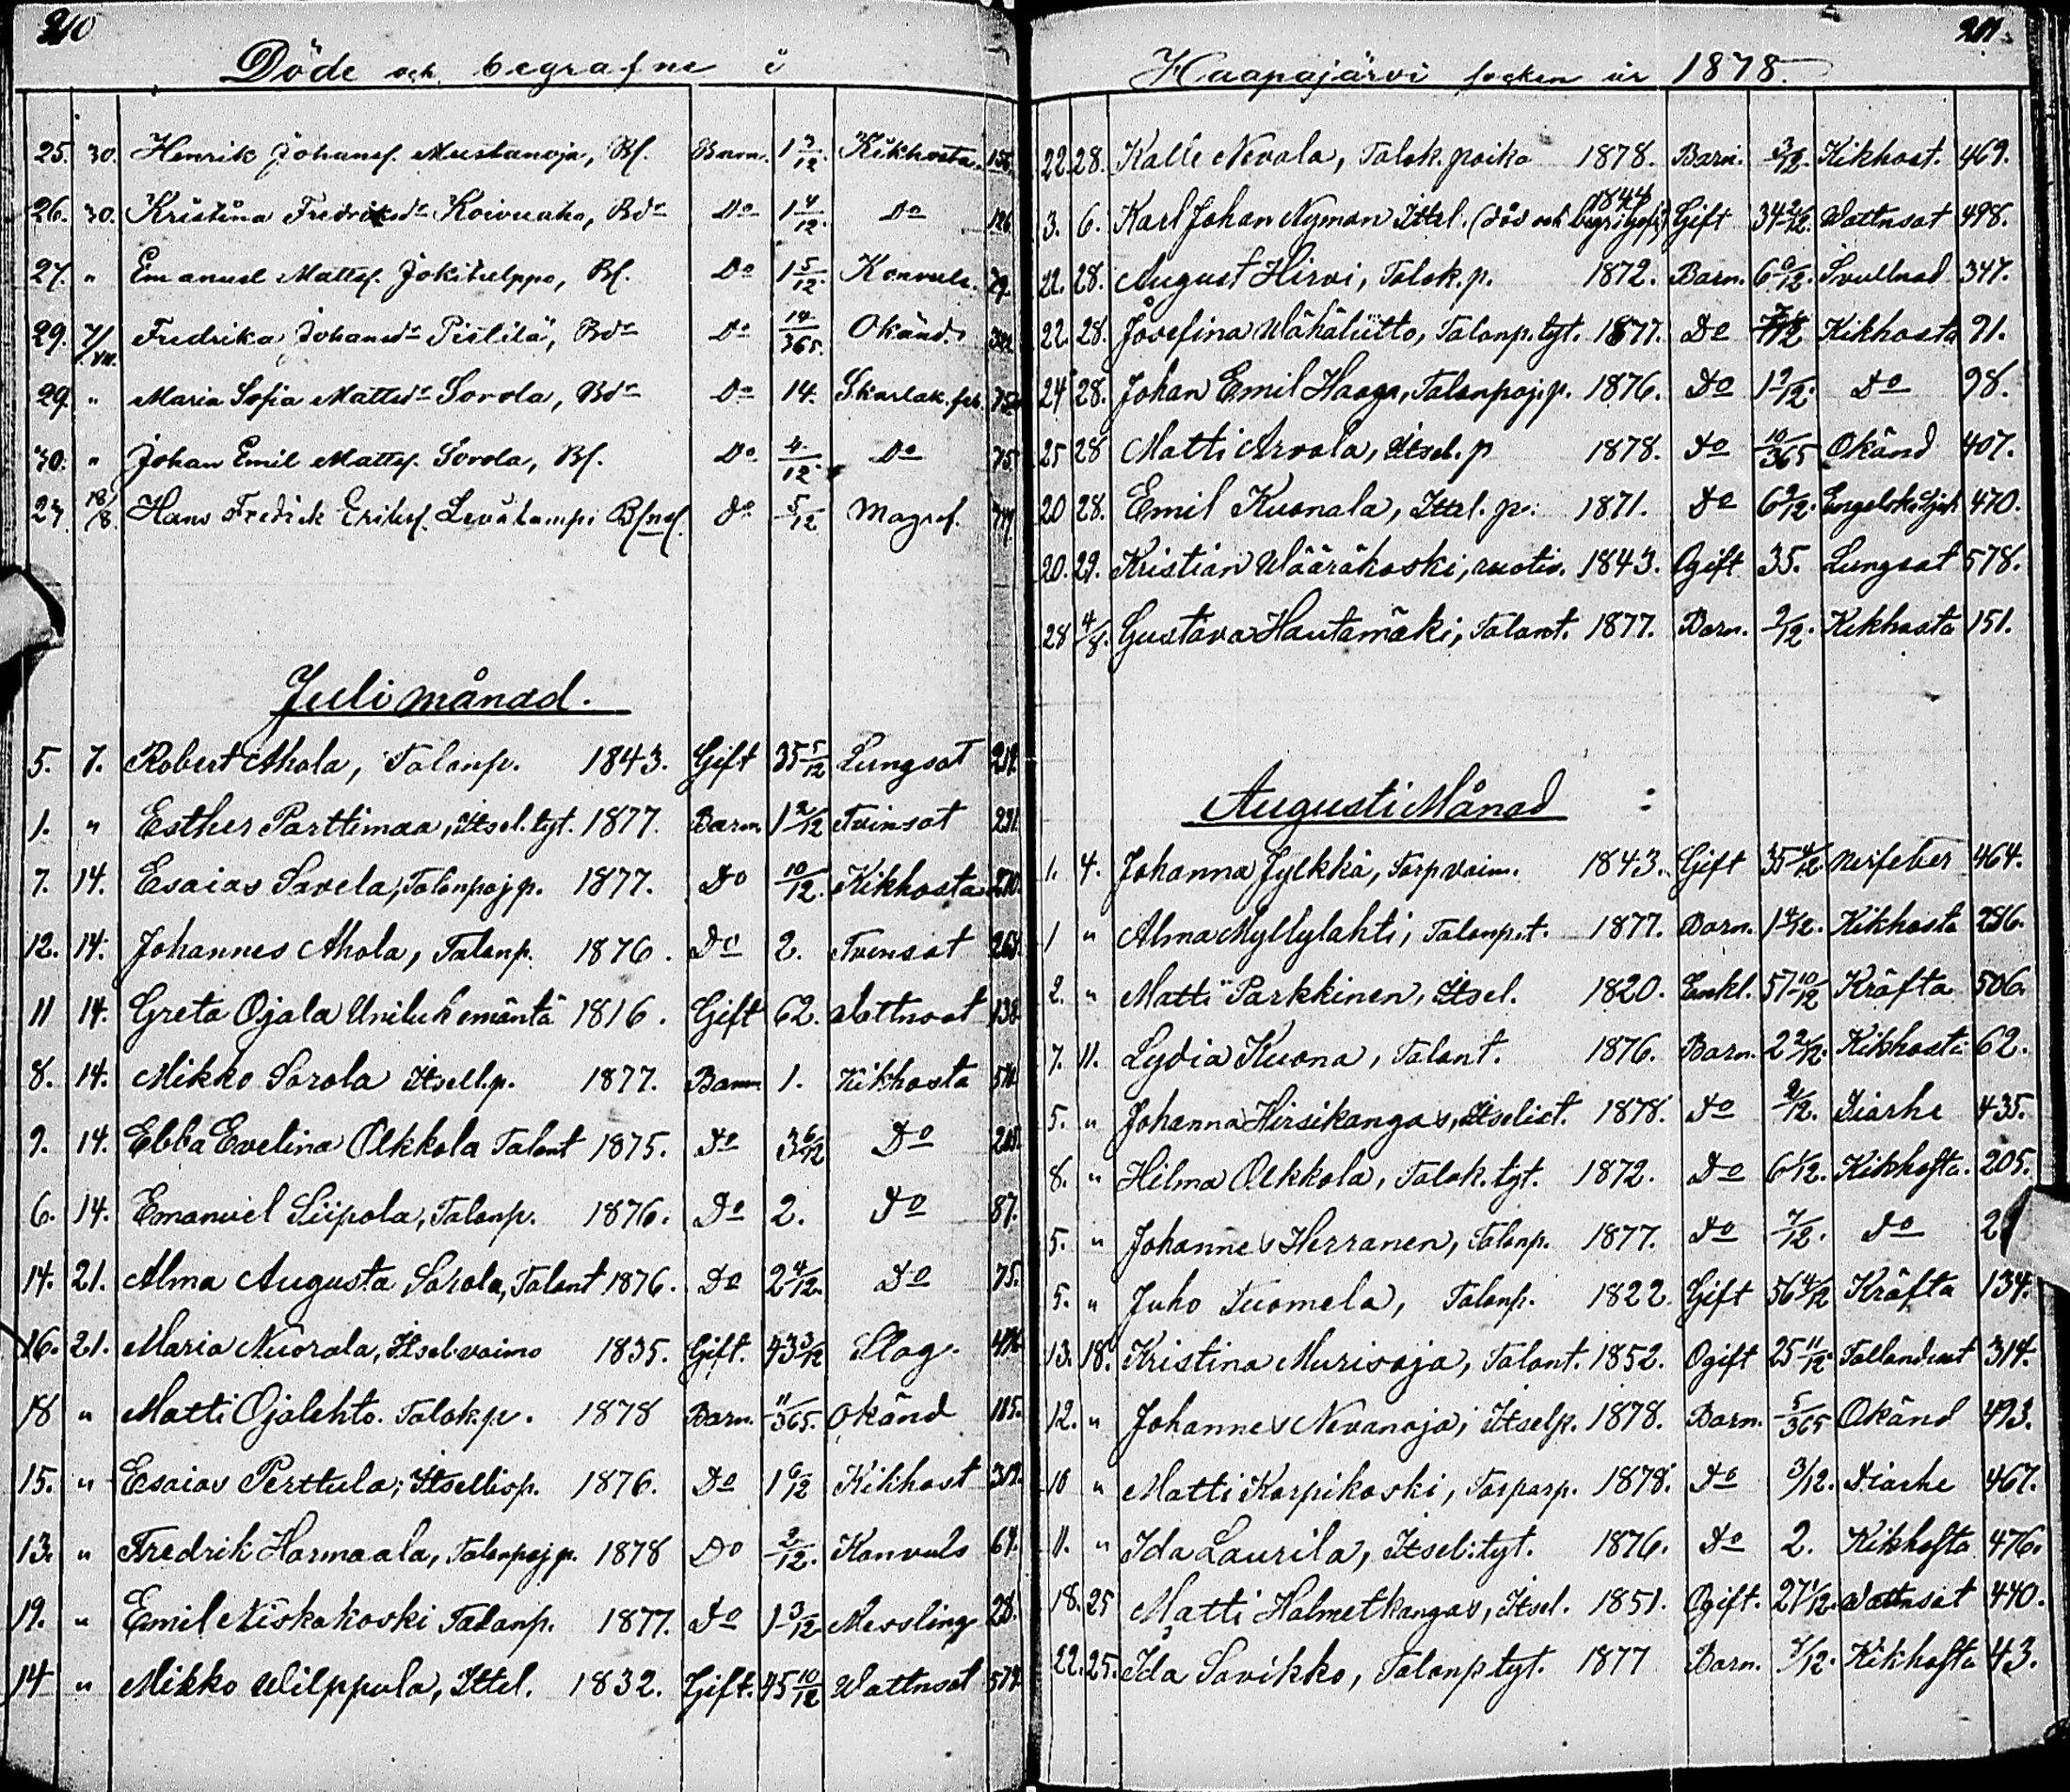 210
Döde och begrafne i
25. 30. Henrik Johansf. Mustanoja, Bf. Barn. 1 7/12 Kikhosta 156.
26. 30. Kristina Fredriksdr Koivuaho, Bdr Do 1 4/12. Do 126
27. " Emanuel Mattsf. Jokihelppo, Bf. Do 1 5/12. Konvuls. 79.
29. 7/VII. Fredrika Johansdr Pistilä, Bdr Do 14/365. Okänd.
29. " Maria Sofia Mattsdr Sorola, Bdr Do 14. Skarlak.feb. 75
30. " Johan Emil Mattsf. Sorola, Bf. Do 4/12. Do 75
27. 18/8. Hans Fredrick Eriksf. Levälampi Do 5/12 Magref.
Juli månad.
5. 7. Robert Ahola, Talonp. 1843. Gift 35 5/12 Lungsot
1. " Esther Parttimaa, Itsel.tyt. 1877. Barn 1 2/12 Tvinsot 231.
7. 14. Esaias Savela, Talonpojp. 1877. Do 10/12. Kikhosta
12. 14. Johannes Ahola, Talonp. 1876. Do 2. Tvinsot 268.
11 14. Greta Ojala Uniluk emäntä 1816. Gift 62. Vattusot 138
8. 14. Mikko Sorola Itsell.p. 1877. Barn 1. Kikhosta
9. 14. Ebba Evelina Olkkola Talont 1875. Do 3 6/12 Do 205.
6. 14. Emanuel Siipola, Talonp. 1876. Do 2. Do 87.
14. 21. Alma Augusta Sorola, Talont 1876. Do 2 4/12. Do 75.
16. 21. Maria Nuorala, Itsel.vaimo 1835. Gift. 43 3/12 Slag.
18 " Matti Ojalehto. Talok.p. 1878 Barn. 11/365. Okänd 185.
15. " Esaias Perttula, Itsellisp. 1876. Do 1 6/12 Kikhost 319.
13. " Fredrik Harmaala, Talonpojp. 1878 Do 2/12. Konvuls 64.
19. " Emil Niskakoski Talonp. 1877. Do 1 3/12 Messling 28.
14 " Mikko Wilppula, Ittel. 1832. Gift. 45 10/12 Wattusot
211.
Haapajärvi socken år 1878.
22. 28. Kalle Nevala, Talok.poika 1878. Barn. 3/12. Kikhost. 469.
1844
3. 6. Karl Johan Nyman Ittel. (död och Gift 34 2/12. Wattusot 498.
22. 28. August Hirvi, Talok.p. 1872. Barn. 6 6/12. Svullnad 347.
22. 28. Josefina Wähäliitto, Talonp.tyt. 1877. Do 7/12 Kikhosta 91.
24 28. Johan Emil Haaga, Talonpojp. 1876. Do 1 9/12. Do 98.
25 28 Matti Arvola, Itsel.p 1878. Do 10/365 Okänd 407.
20 28. Emil Kuonala, Ittel.p. 1871. Do 6 9/12. Engelska Sjuk 470.
20. 29. Kristian Wääräkoski, ruotiv. 1843. Ogift 35. Lungsot 578.
28 4/8. Gustava Hautamäki, Talont. 1877. Barn. 9/12. Kikhosta 151.
Augusti Månad
1. 4. Johanna Jylkkä, Torp.vaim. 1843. Gift 35 4/12. Nerfeber 464.
1 " Alma Myllylahti, Talonp.t. 1877. Barn. 1 4/12. Kikhosta 286.
2. " Matti Parkkinen, Itsel. 1820. Enkl. 57 10/12 Kräfta 506.
7. 11. Lydia Kuona, Talont. 1876. Barn. 2 2/12. Kikhosta 62.
5. " Johanna Hirsikangas, Itselist. 1878. Do 2/12. Diarhe 435.
8. " Hilma Olkkola, Talok.tyt. 1872. Do 6 1/12. Kikhosta. 205.
5. " Johannes Herranen, Talonp. 1877. Do 7/12. Do
5. " Juho Tuomela, Talonp. 1822. Gift 56 4/12 Kräfta 134.
13. 18. Kristina Murisoja, Talont. 1852. Ogift 25 11/12. Fallandesot 314.
12. " Johannes Nevanoja, Itselp. 1878. Barn. 5/365 Okänd 493.
10 " Matti Karpikoski, Torparp. 1878. Do 3/12. Diarhe 467.
11. " Ida Laurila, Itsel:tyt. 1876. Do 2. Kikhosta 476.
18. 25 Matti Halmetkangas, Itsel. 1851. Ogift. 27 1/12. Wattusot 440.
22. 25. Ida Savikko, Talonp.tyt. 1877 Barn. 7/12. Kikhosta 43.